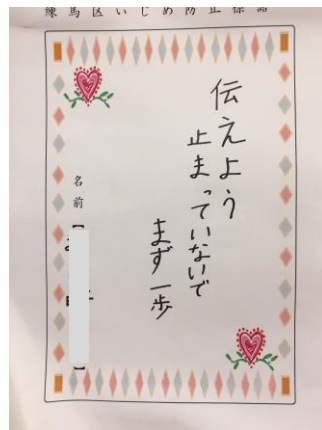 練馬区いじめ防止標語
伝えよう
止まっていないで
まず一歩
名前【
】